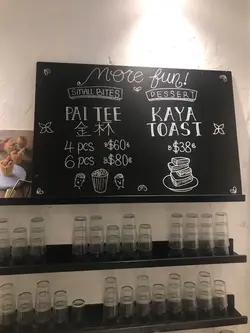 More fun!
SMALL BITES
PAI TEE
金杯
4 pcs $60
6 pcs $80
DESSERT
KAYA
TOAST
$38